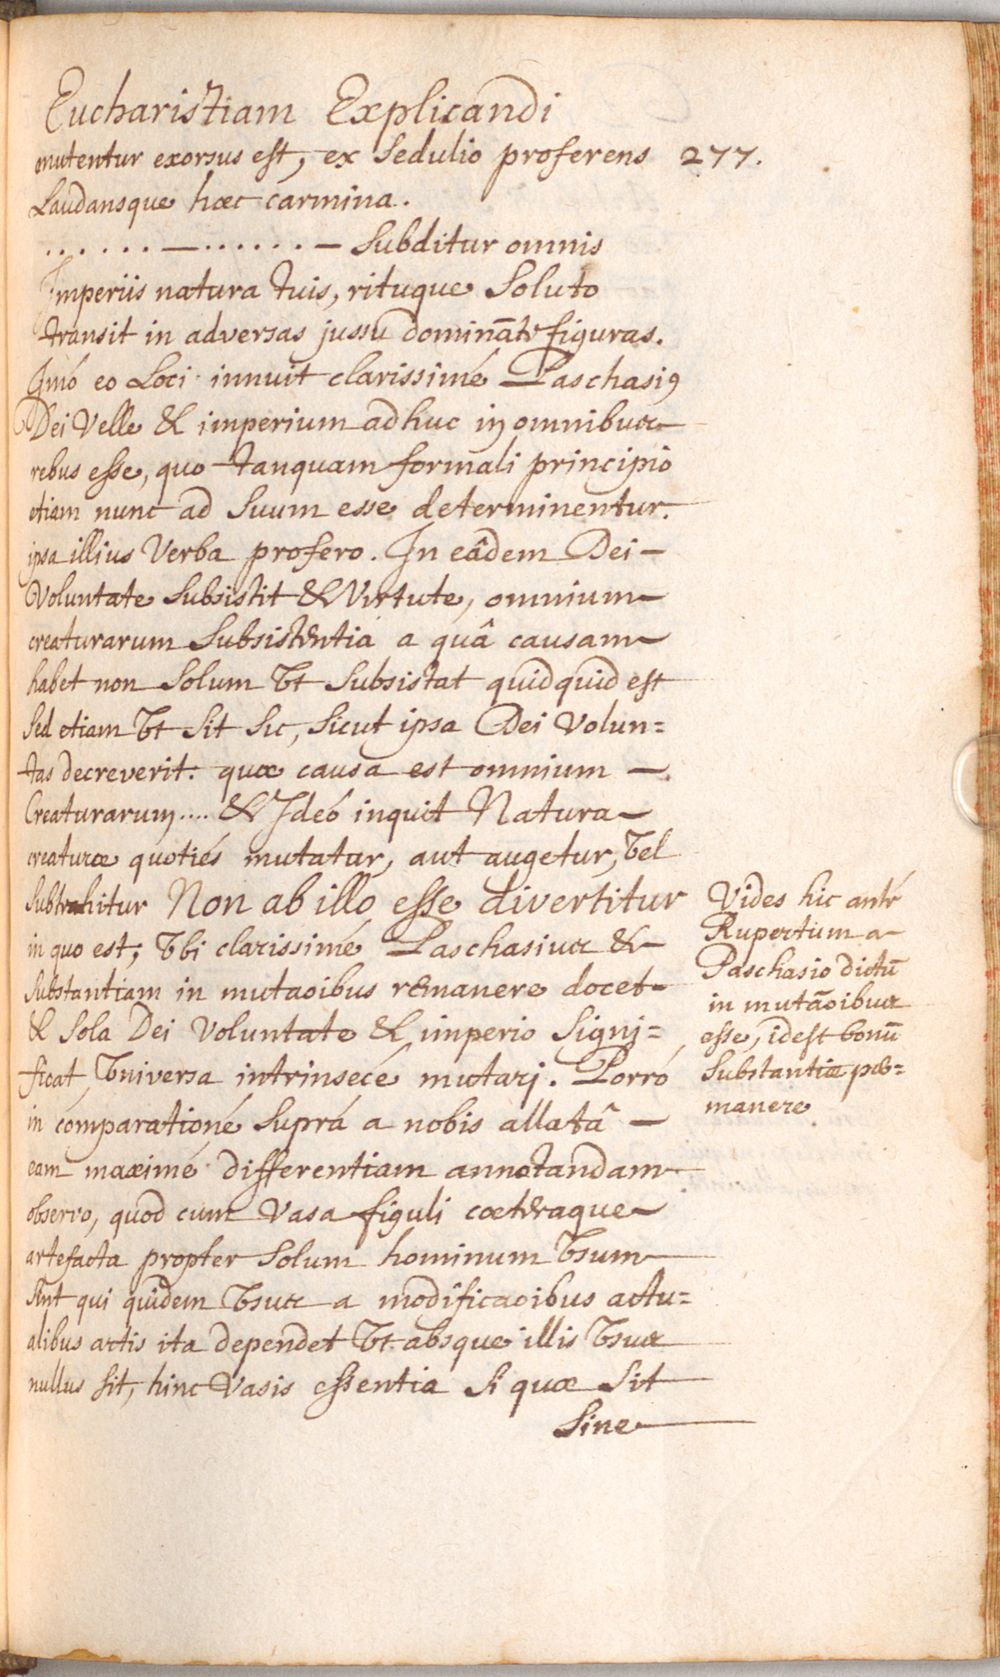 Eucharistiam Explicandi
mutentur exorsus est, ex Sedulio proferens 277.
Laudansque hæc carmina.
. . . . . . — . . . . . . — Subditur omnis
Imperiis natura tuis, rituque Soluto
transit in adversas jussu dominãte figuras.
Imó eo Loci innuit clarissimé Paschasiꝰ
Dei Velle & imperium adhuc in omnibus
rebus esse, quo tanquam formali principio
etiam nunc ad Suum esse determinentur.
ipsa illius Verba profero. In eâdem Dei —
Voluntate Subsistit & Virtute, omnium
creaturarum Subsistentia a quâ causam
habet non Solum Ut Subsistat quidquid est
Sed etiam Ut Sit Sic, Sicut ipsa Dei Volun=
tas decreverit. quæ causa est omnium —
Creaturarum .... & Ideó inquit Natura
creaturæ quotiés mutatur, aut augetur, Vel
Subtrahitur Non ab illo esse divertitur
in quo est, Ubi clarissimé Paschasius &
Substantiam in mutaoibus remanere docet
& Sola Dei Voluntate & imperio Signi=
ficat, Universa intrinsecé mutari. Porró
in comparationé Suprá a nobis allatâ —
eam maximé differentiam annotandam
observo, quod cum Vasa figuli cæteraque
artefacta propter Solum hominum Usum
Sint qui quidem Usus a modificaoibus actu=
alibus artis ita dependet Ut absque illis Usus
nullus Sit, hinc Vasis essentia Si quæ Sit
Sine
Vides hic anté
Rupertum a
Paschasio dictũ
in mutãoibus
esse, idest bonũ
Substantiæ per=
manere